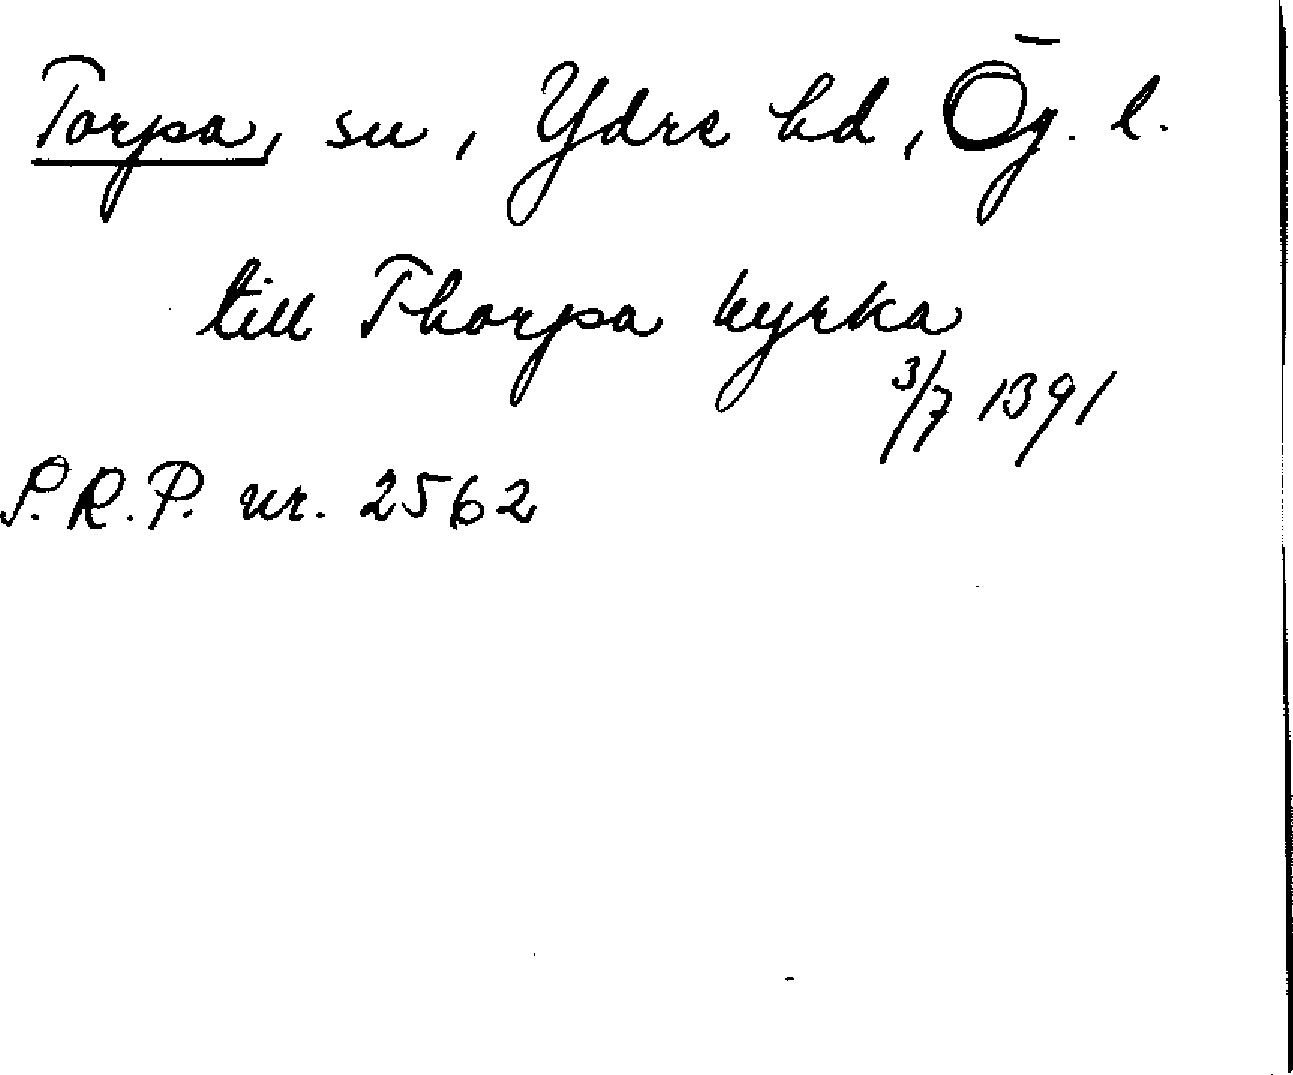 Torpa, sn, Ydre hd, Ög. l.
till Thorpa kyrka
3/7 1391
S.R.P. nr. 2562